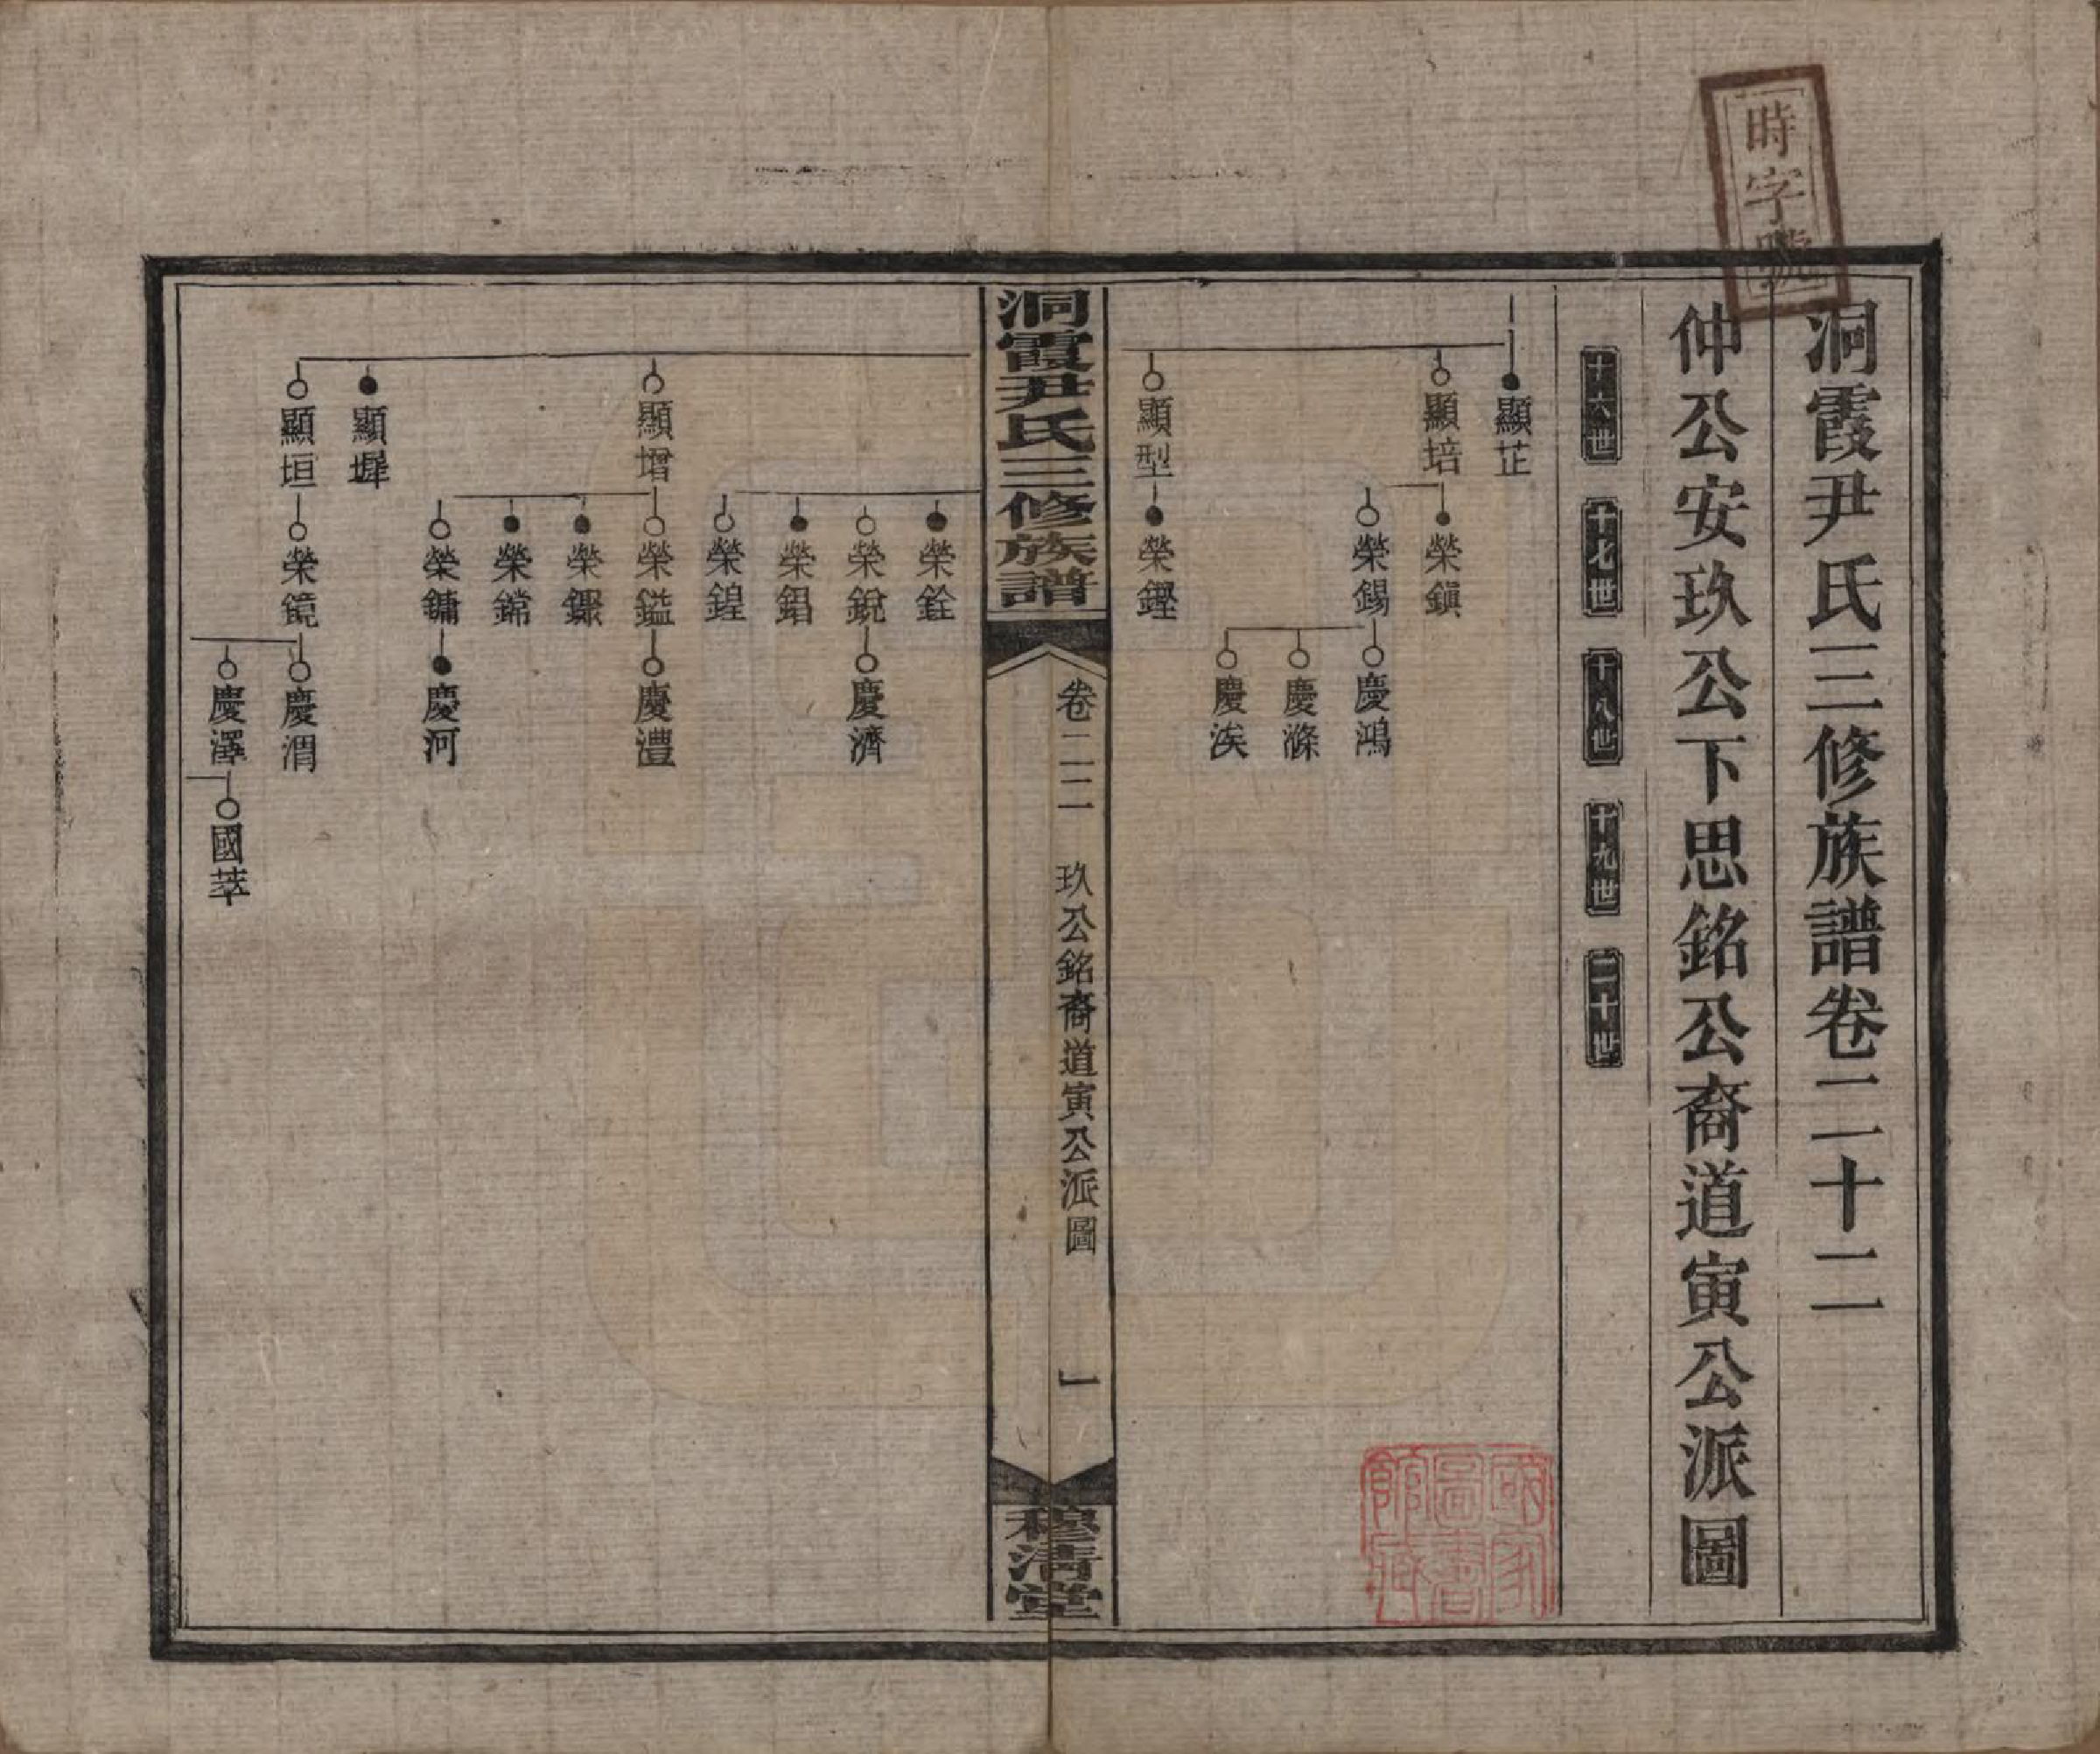 時字號
洞霞尹氏三修族譜卷二十二
仲公安玖公下思銘公裔道寅公派圖
十六世 十七世 十八世 十九世 二十世
顯芷
顯培 榮鎭
榮錫 慶鴻
慶滌
慶涘
顯型 榮鏗
洞霞尹氏三修族譜
卷二二 玖公銘裔道寅公派圖 一
穆清堂
榮銓
榮銳 慶濟
榮錩
榮鍠
顯增 榮鎰 慶澧
榮鏍
榮鏛
榮鏞 慶河
顯墀
顯垣 榮鏡 慶渭
慶澤 國萃
國家圖書館藏